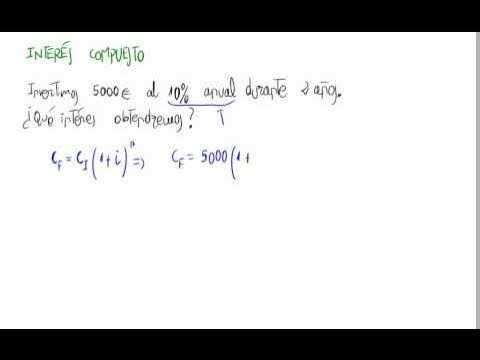 INTERÉS COMPUESTO
Invertimos 5000€ al 10% anual durante 2 años.
¿Qué interés obtendremos? i
C_F = C_I (1+i)^n => C_F = 5000 (1+